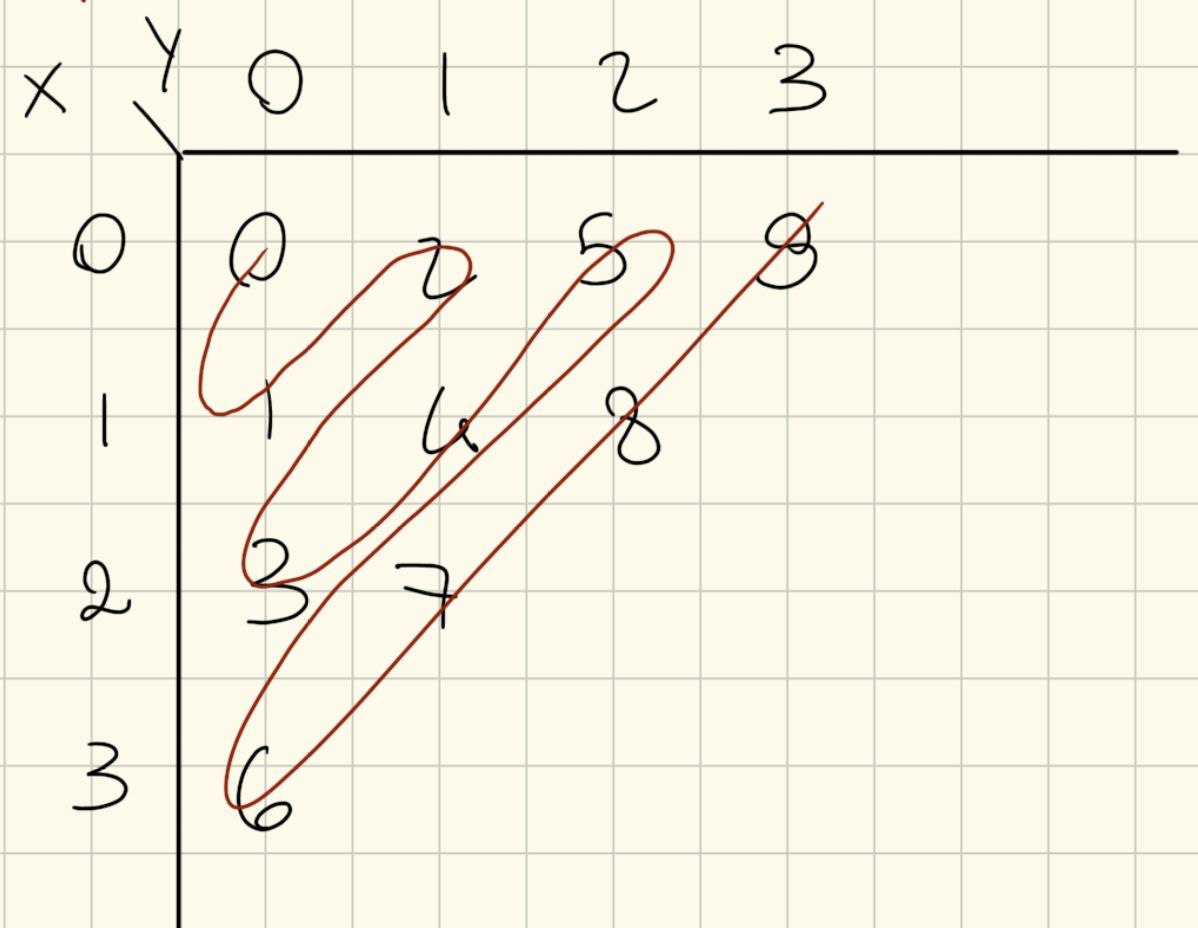 X Y 0 1 2 3
0 0 2 5 9
1 1 4 8
2 3 7
3 6